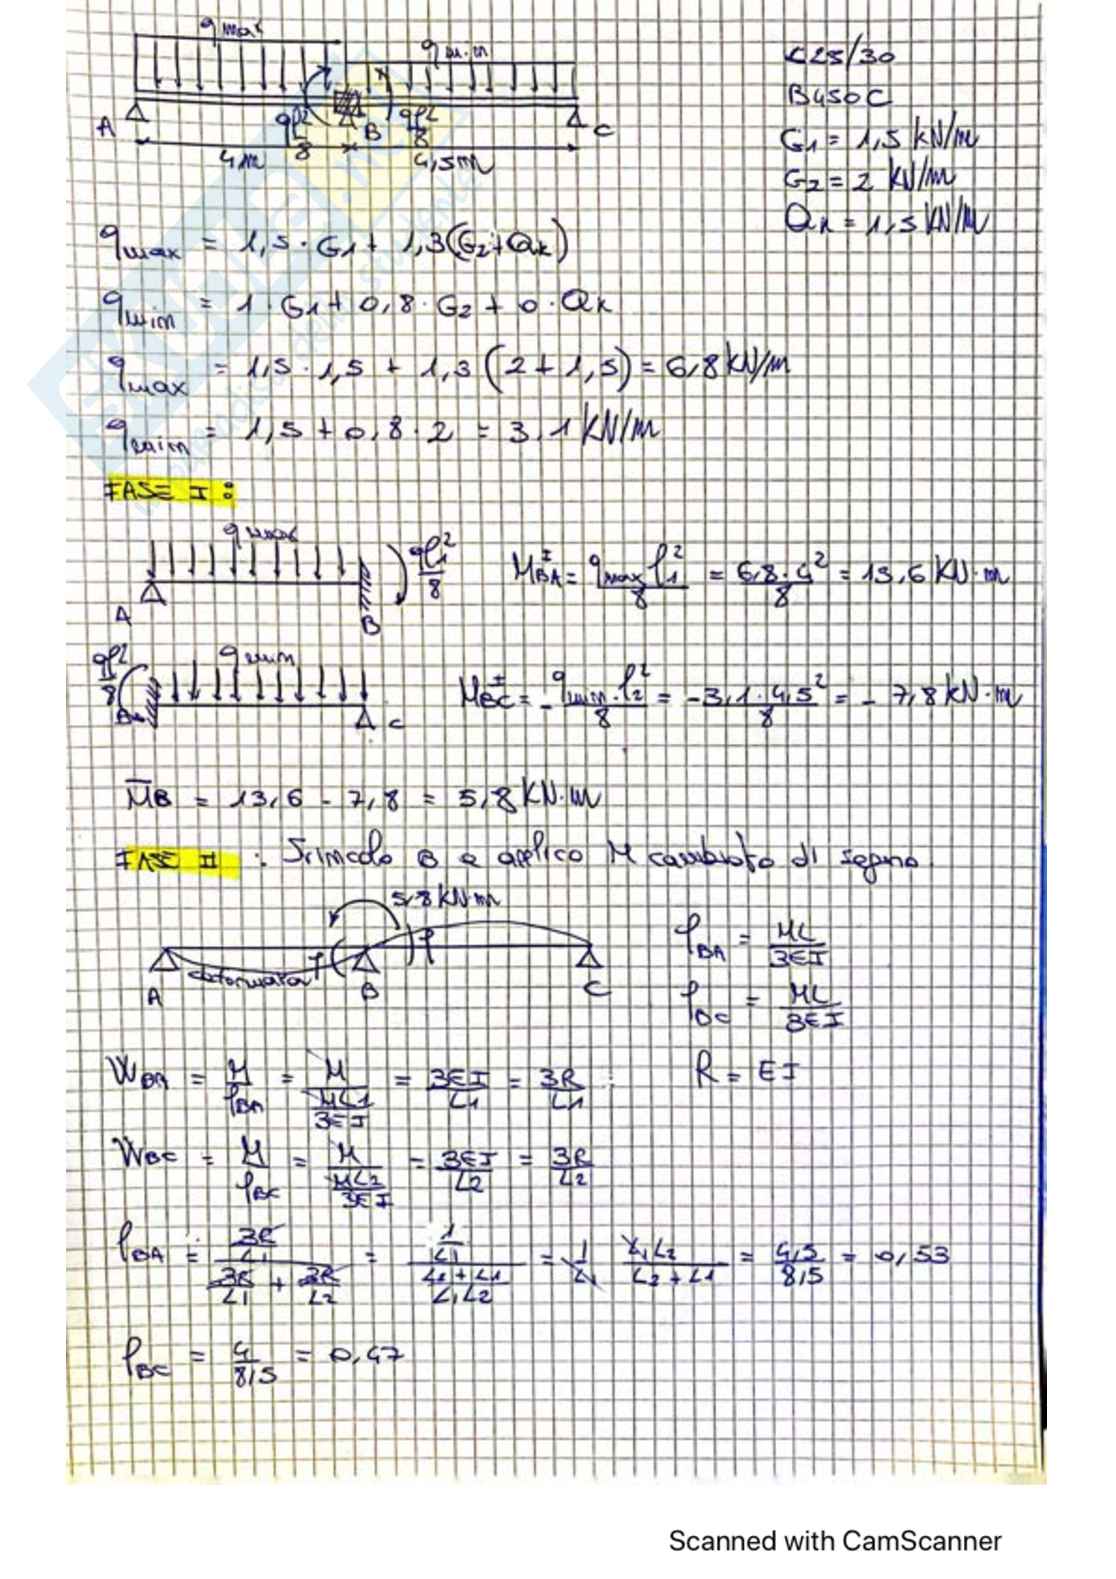 qmax
qmin
C25/30
B450C
G1 = 1,5 kN/m
G2 = 2 kN/m
Qk = 1,5 kN/m
A
ql²/8
B
ql²/8
C
4m
4,5m
qmax = 1,5 · G1 + 1,3(G2+Qk)
qmin = 1 · G1 + 0,8 · G2 + 0 · Qk
qmax = 1,5 · 1,5 + 1,3 (2 + 1,5) = 6,8 kN/m
qmin = 1,5 + 0,8 · 2 = 3,1 kN/m
FASE I :
qmax
ql1²/8
A
B
M^I BA = qmax l1²/8 = 6,8 · 4²/8 = 13,6 kN·m
ql²/8
qmin
B
C
M^I BC = - qmin · l2²/8 = -3,1 · 4,5²/8 = - 7,8 kN·m
M̅B = 13,6 - 7,8 = 5,8 kN·m
FASE II : Svincolo B e applico M cambiato di segno.
5,8 kN·m
deformata
φ
A
B
C
φBA = ML/3EI
φBC = ML/3EI
WBA = M/φBA = M/(ML1/3EI) = 3EI/L1 = 3R/L1
R = EI
WBC = M/φBC = M/(ML2/3EI) = 3EI/L2 = 3R/L2
ρBA = (3R/L1)/(3R/L1 + 3R/L2) = (1/L1)/((L2+L1)/L1L2) = 1/L1 L1L2/(L2+L1) = 4,5/8,5 = 0,53
ρBC = 4/8,5 = 0,47
Scanned with CamScanner